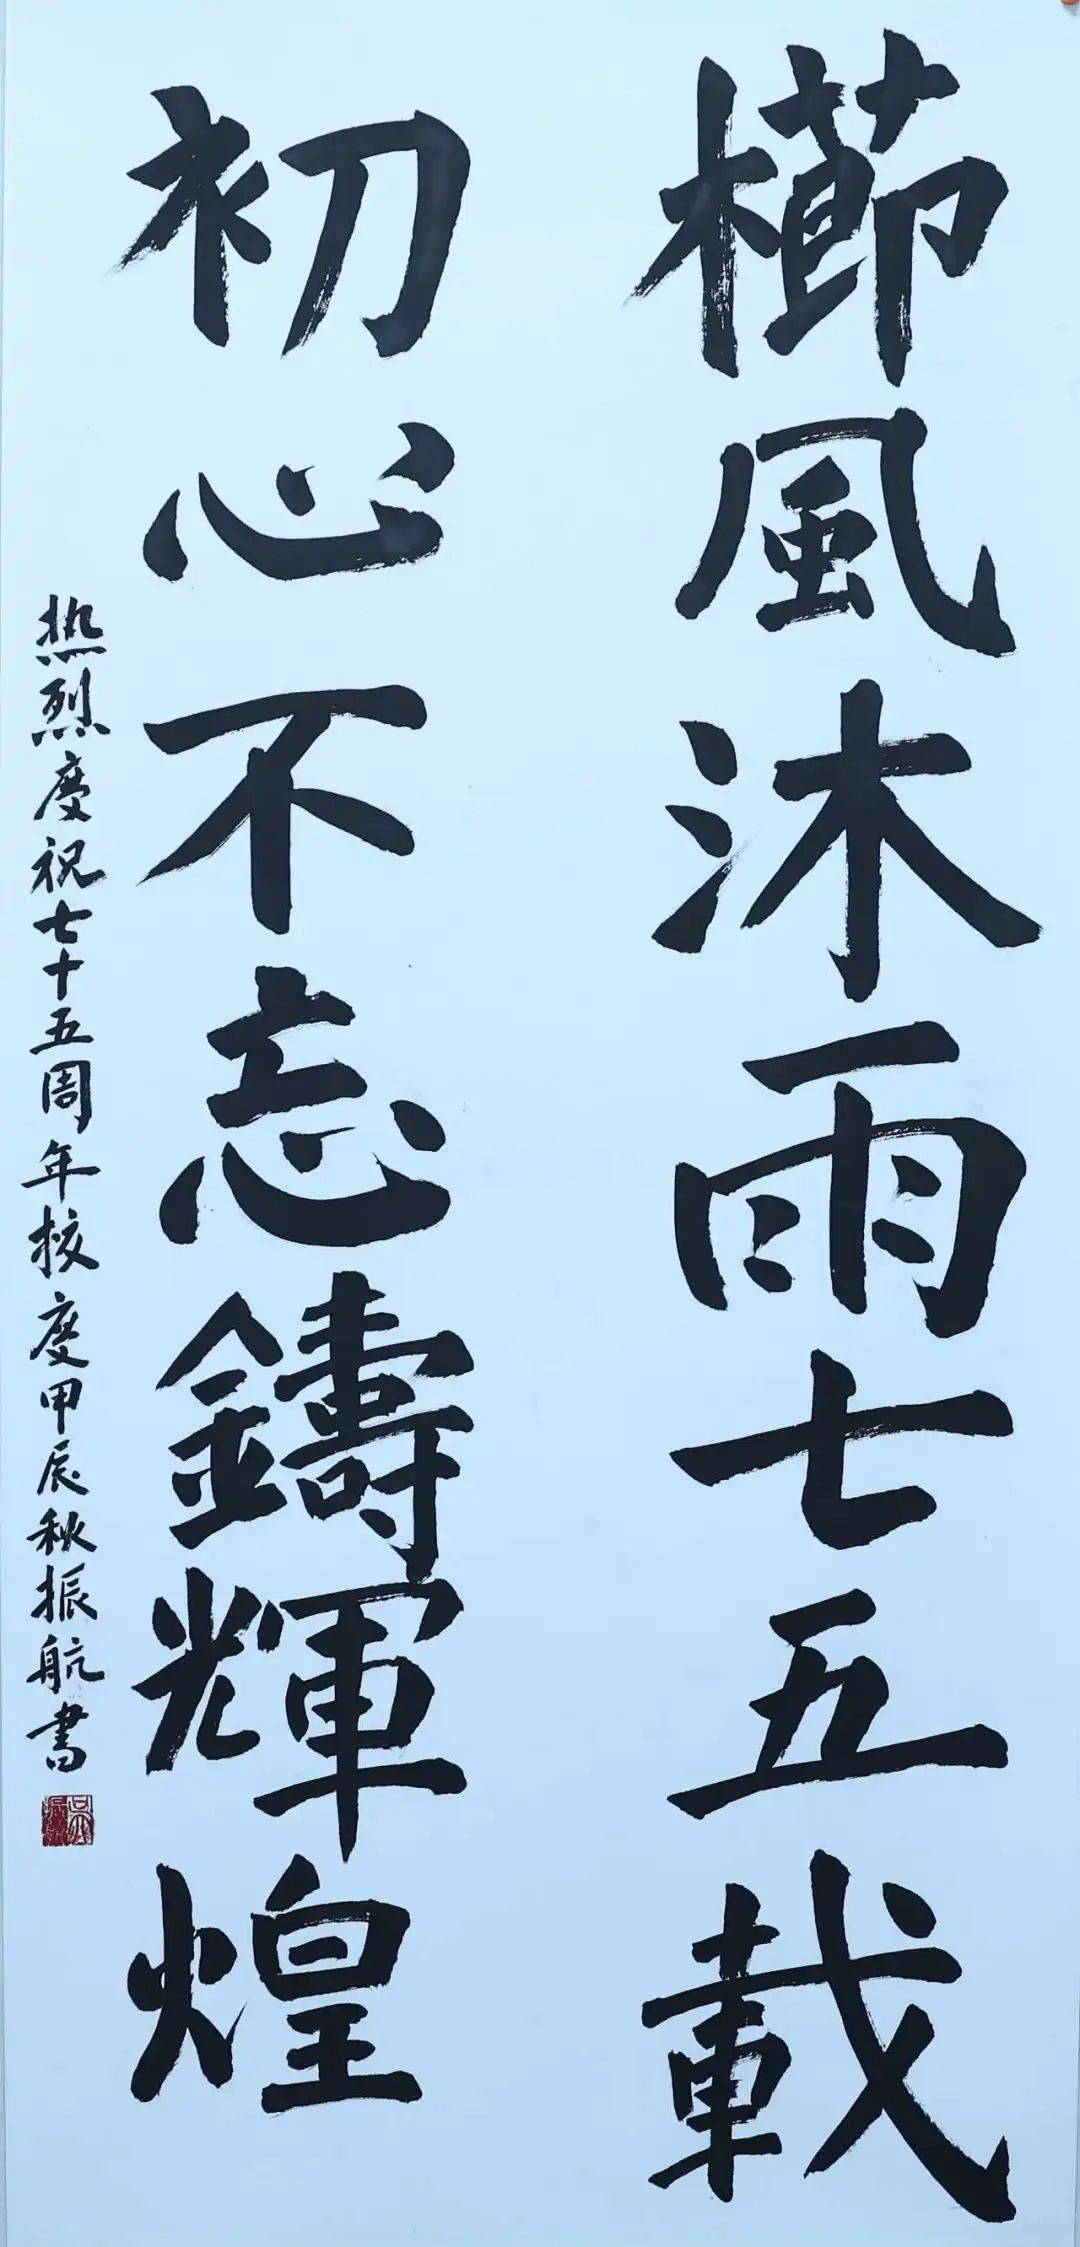 櫛風沐雨七五載
初心不忘鑄輝煌
热烈庆祝七十五周年校庆甲辰秋振航書